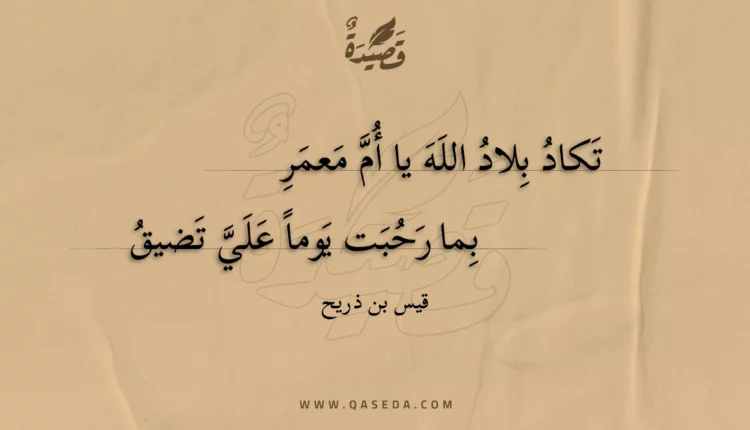 قَصِيْدَةٌ
تَكادُ بِلادُ اللَهَ يا أُمَّ مَعمَرِ
بِما رَحُبَت يَوماً عَلَيَّ تَضيقُ
قيس بن ذريح
WWW.QASEDA.COM